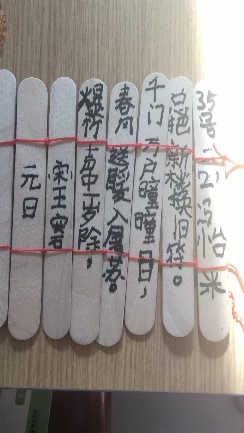 元日
宋王安
爆竹声中岁除，
春风送暖入屠苏。
千门万户曈曈日，
总把新桃换旧符。
35号
怡
米